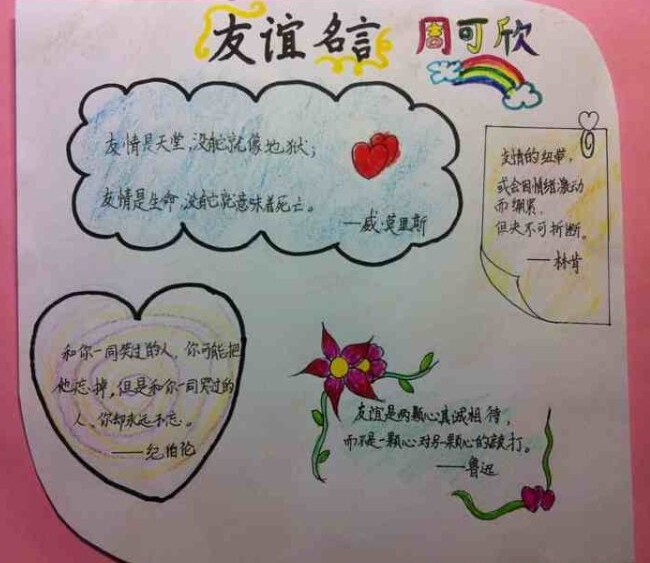 友谊名言 周可欣
友情是天堂,没它就像地狱;
友情是生命,没它就意味着死亡。
——威·莫里斯
友情的纽带,
或会因情绪激动
而绷紧,
但决不可折断。
——林肯
和你一同笑过的人,你可能把
他忘掉,但是和你一同哭过的
人、你却永远不忘。
——纪伯伦
友谊是两颗心真诚相待,
而不是一颗心对另一颗心的敲打。
——鲁迅